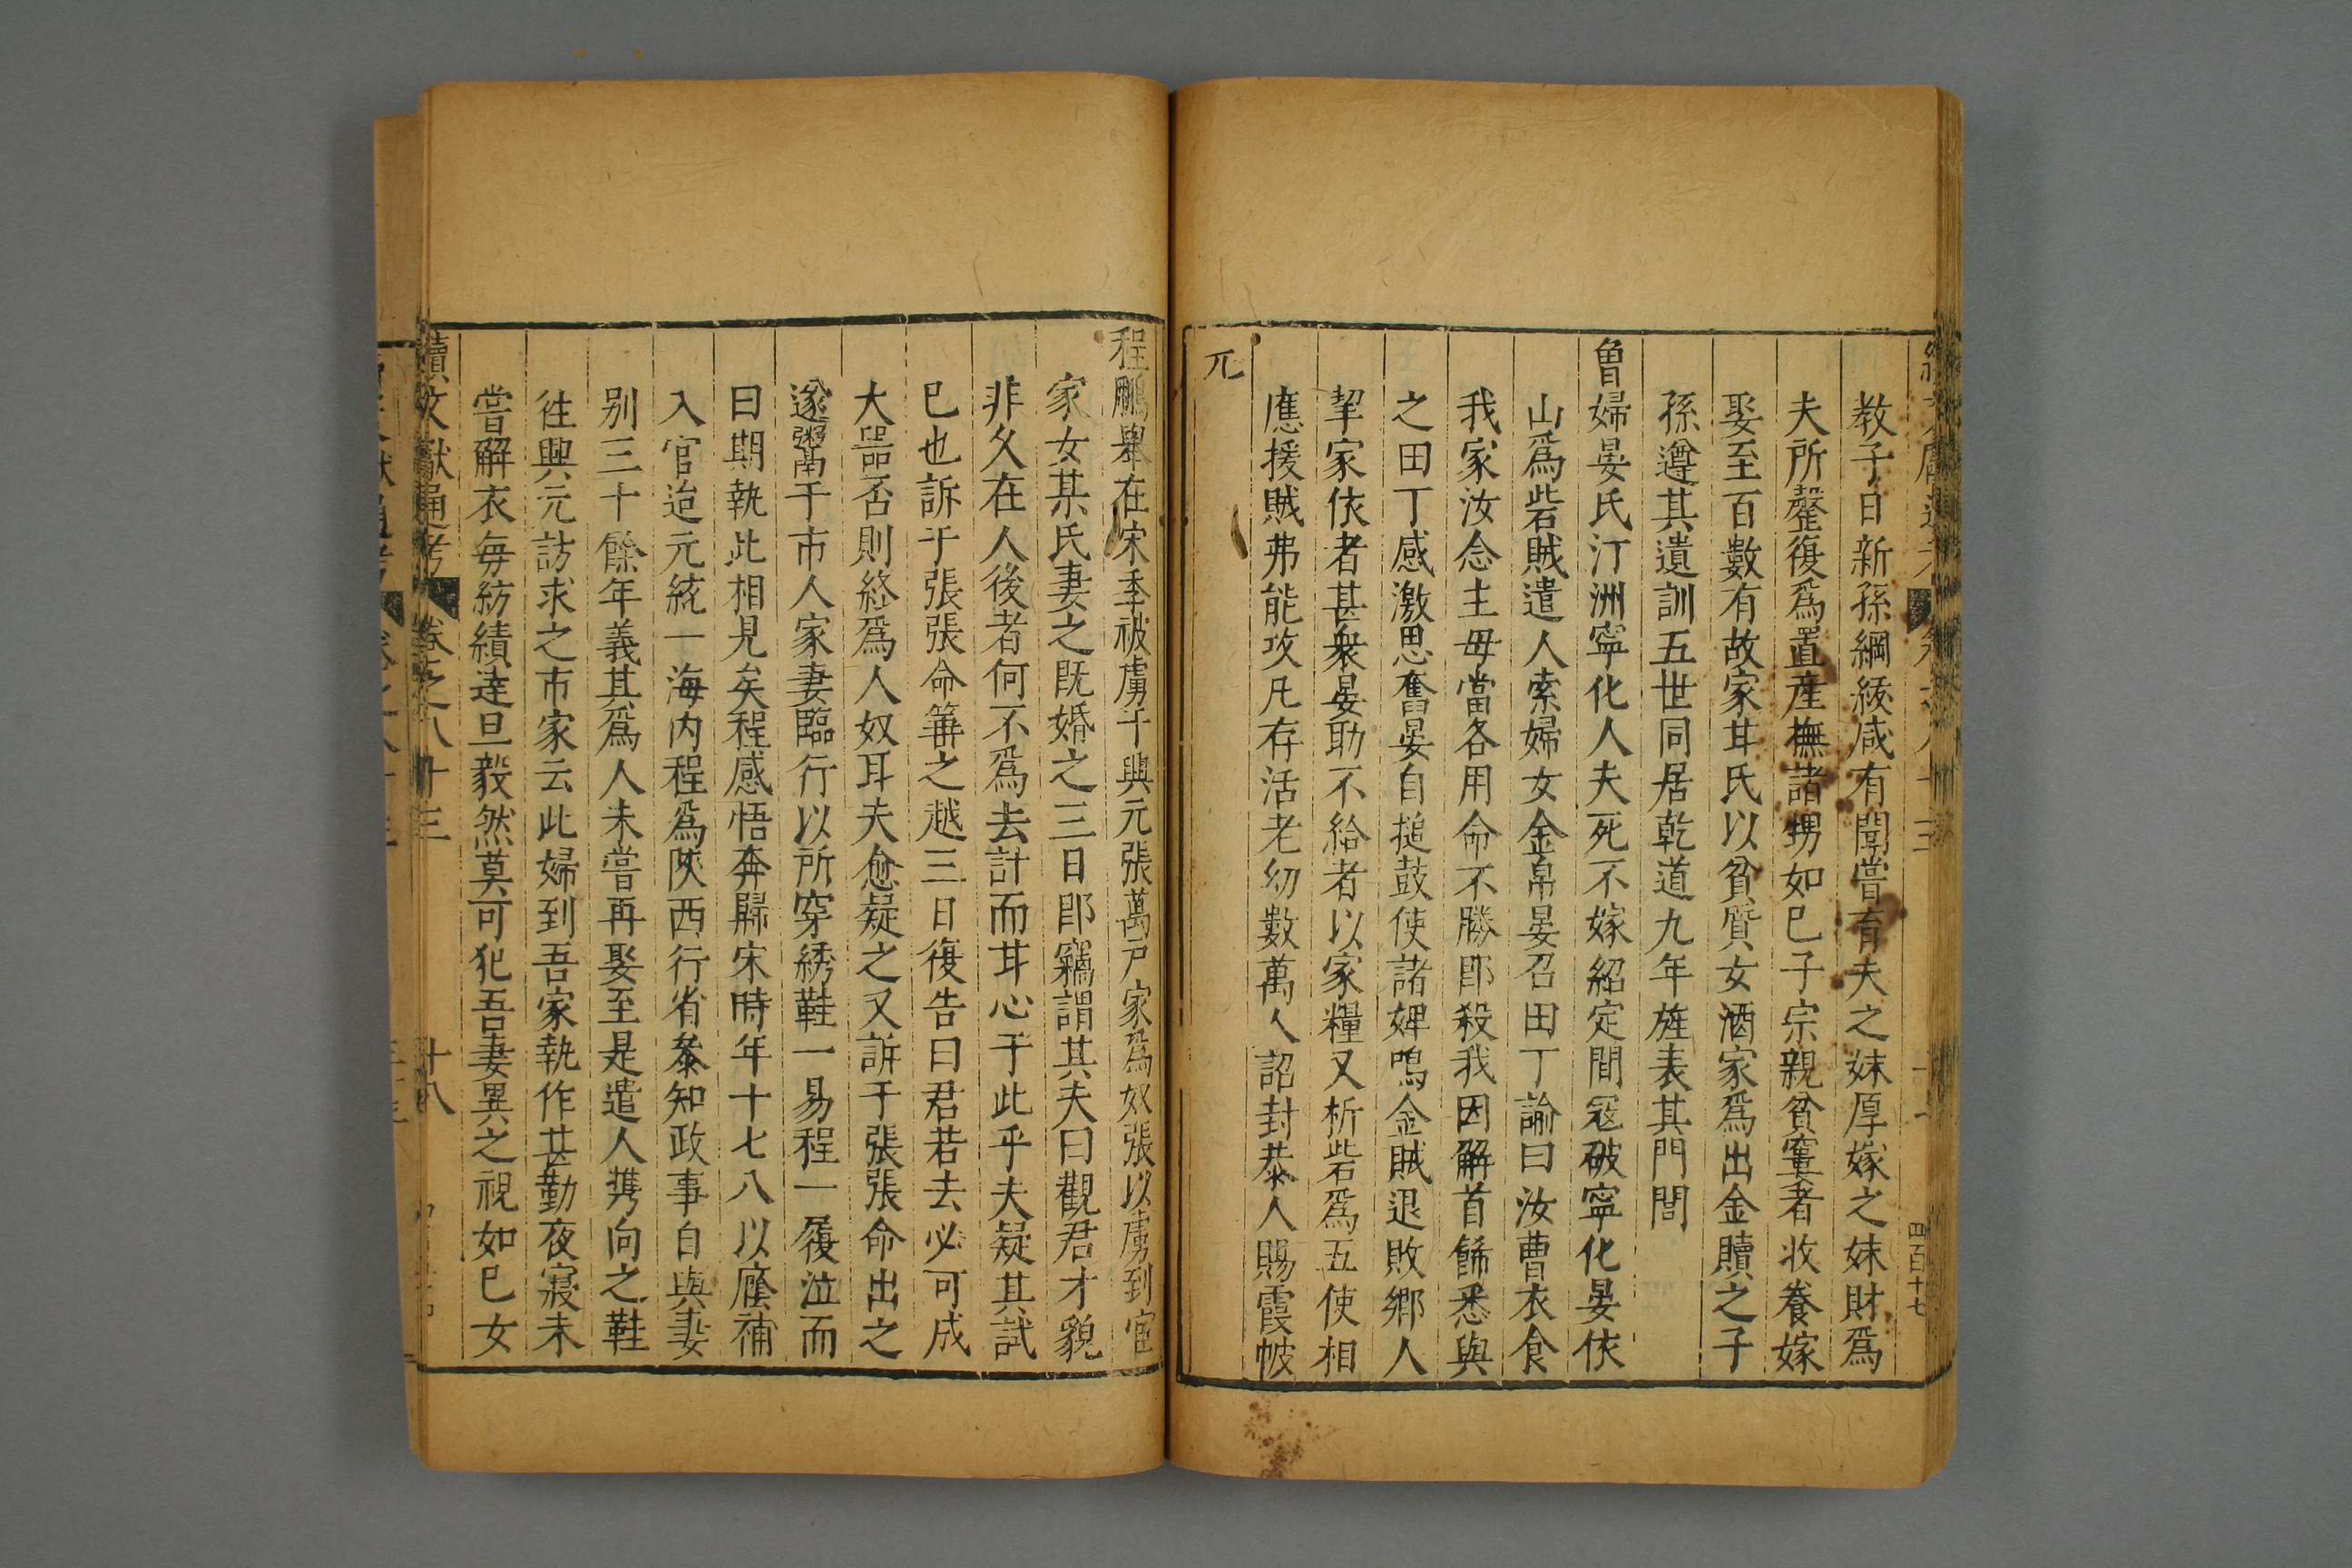 教子日新孫綱綾咸有聞嘗育夫之妹厚嫁之妹財爲
夫所罄復爲置産撫諸甥如已子宗親貧窶者收養嫁
娶至百數有故家甘氏以貧質女酒家爲出金贖之子
孫遵其遺訓五世同居乾道九年旌表其門閭
曾婦晏氏汀洲寧化人夫死不嫁紹定間冦破寧化晏依
山爲砦賊遣人索婦女金帛晏召田丁諭曰汝曹衣食
我家汝念主毋當各用命不勝卽殺我因解首餙悉與
之田丁感激思奮晏自搥鼓使諸婢鳴金賊退敗鄉人
挈家依者甚衆晏助不給者以家糧又析砦爲五使相
應援賊弗能攻凡存活老幼數萬人詔封恭人賜霞帔
元
程鵬舉在宋季被虜于興元張萬戸家爲奴張以虜到宦
家女某氏妻之既婚之三日卽竊謂其夫曰觀君才貌
非久在人後者何不爲去計而甘心于此乎夫疑其試
已也訴于張張命箠之越三日復告曰君若去必可成
大噐否則終爲人奴耳夫愈疑之又訴于張張命出之
遂鬻于市人家妻臨行以所穿綉鞋一易程一履泣而
曰期執此相見矣程感悟奔歸宋時年十七八以廕補
入官迨元統一海内程爲陜西行省叅知政事自與妻
别三十餘年義其爲人未嘗再娶至是遣人携向之鞋
徃興元訪求之市家云此婦到吾家執作甚勤夜寢未
嘗解衣毎紡績達旦毅然莫可犯吾妻異之視如已女
續文獻通考 卷之八十三 十八
四百十七